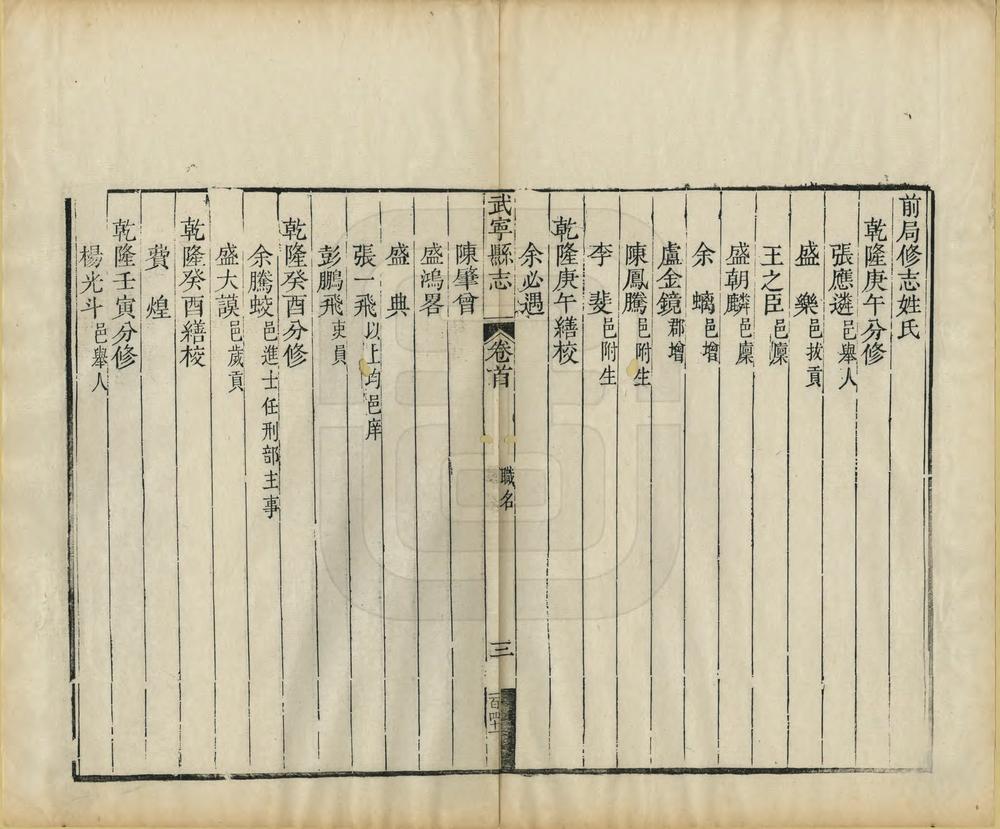 前局修志姓氏
乾隆庚午分修
張應遴邑舉人
盛樂邑拔貢
王之臣邑廩
盛朝麟邑廩
余螭邑增
盧金鏡郡增
陳鳳騰邑附生
李斐邑附生
乾隆庚午繕校
余必遇
武寧縣志
卷首
職名
三
陳肇曾
盛鴻畧
盛典
張一飛以上均邑庠
彭鵬飛吏員
乾隆癸酉分修
余騰蛟邑進士任刑部主事
盛大謨邑歲貢
乾隆癸酉繕校
費煌
乾隆壬寅分修
楊光斗邑舉人